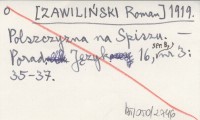 [ZAWILIŃSKI Roman] 1919.
Polszczyzna na Spiszu. —
Poradnik Językowy 16, nr 3:
35-37.